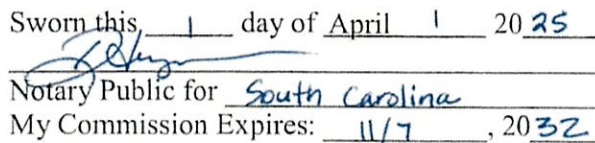 Sworn this 1 day of April 1 2025
Notary Public for South Carolina
My Commission Expires: 11/7, 2032